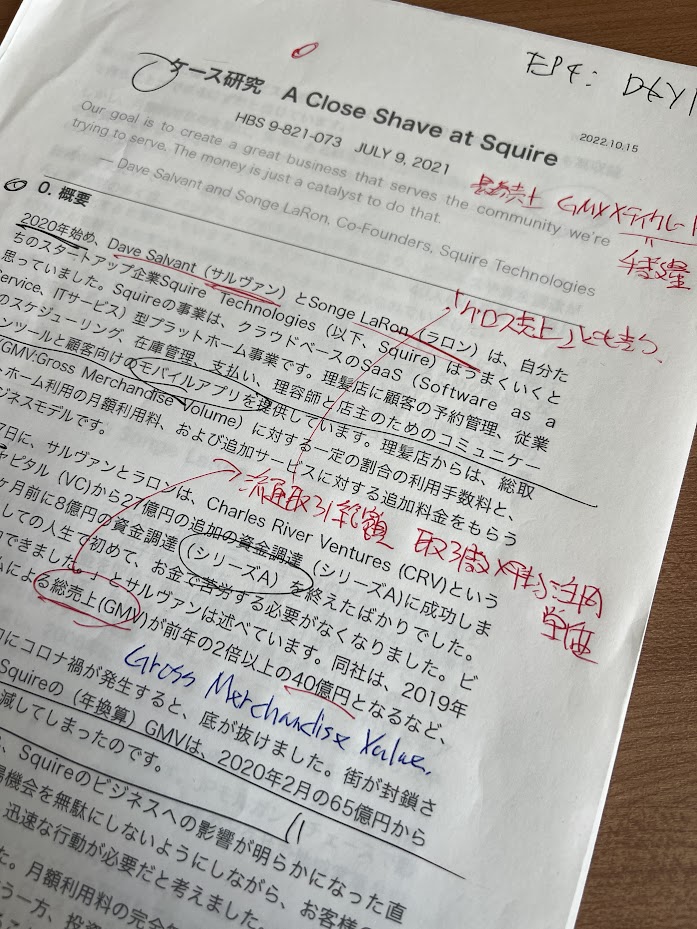 EPE: DAY1
ケース研究 A Close Shave at Squire
2022.10.15
HBS 9-821-073 JULY 9, 2021
Our goal is to create a great business that serves the community we're
trying to serve. The money is just a catalyst to do that.
— Dave Salvant and Songe LaRon, Co-Founders, Squire Technologies
GMV×テイクレート
手数量
0. 概要
「グロス売上」とも言う、
2020年始め、Dave Salvant（サルヴァン）とSonge LaRon（ラロン）は、自分た
ちのスタートアップ企業Squire Technologies（以下、Squire）はうまくいくと
思っていました。Squireの事業は、クラウドベースのSaaS（Software as a
Service、ITサービス）型プラットホーム事業です。理髪店に顧客の予約管理、従業
のスケジューリング、在庫管理、支払い、理容師と店主のためのコミュニケー
ンツールと顧客向けのモバイルアプリを提供しています。理髪店からは、総取
(GMV:Gross Merchandise Volume) に対する一定の割合の利用手数料と、
ホーム利用の月額利用料、および追加サービスに対する追加料金をもらう
ビジネスモデルです。
流通取引総額
単価
7日に、サルヴァンとラロンは、Charles River Ventures (CRV)という
ャピタル (VC)から27億円の追加の資金調達（シリーズA）に成功しま
ヶ月前に8億円の資金調達（シリーズA）を終えたばかりでした。
しての人生で初めて、お金で苦労する必要がなくなりました。ビ
できました。」とサルヴァンは述べています。同社は、2019年
ムによる総売上(GMV)が前年の2倍以上の40億円となるなど、
Gross Merchandise Value.
にコロナ禍が発生すると、底が抜けました。街が封鎖さ
Squireの（年換算）GMVは、2020年2月の65億円から
減してしまったのです。
、Squireのビジネスへの影響が明らかになった直
場機会を無駄にしないようにしながら、お客様の
迅速な行動が必要だと考えました。
た。月額利用料の完全
う一方、投資